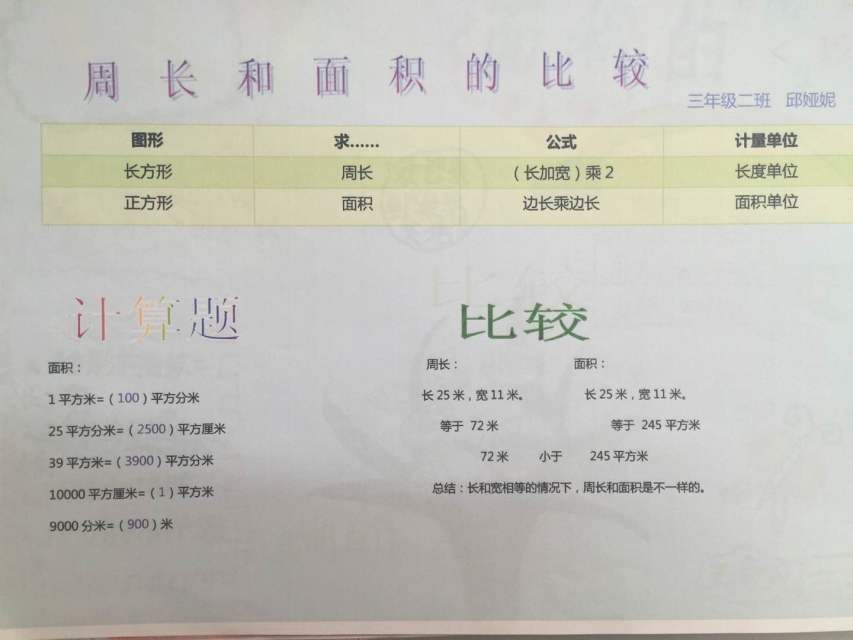 周长和面积的比较
三年级二班 邱娅妮
图形 求…… 公式 计量单位
长方形 周长 （长加宽）乘2 长度单位
正方形 面积 边长乘边长 面积单位
计算题
面积：
1平方米=（100）平方分米
25平方分米=（2500）平方厘米
39平方米=（3900）平方分米
10000平方厘米=（1）平方米
9000分米=（900）米
比较
周长： 面积：
长25米，宽11米。 长25米，宽11米。
等于 72米 等于 245平方米
72米 小于 245平方米
总结：长和宽相等的情况下，周长和面积是不一样的。